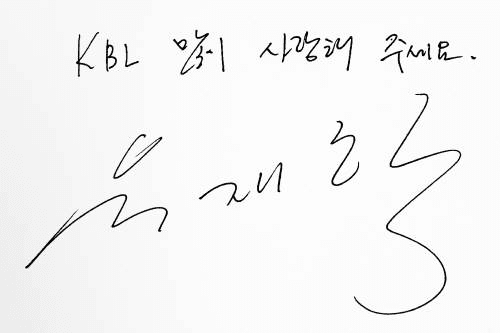 KBL 많이 사랑해 주세요.
유재학